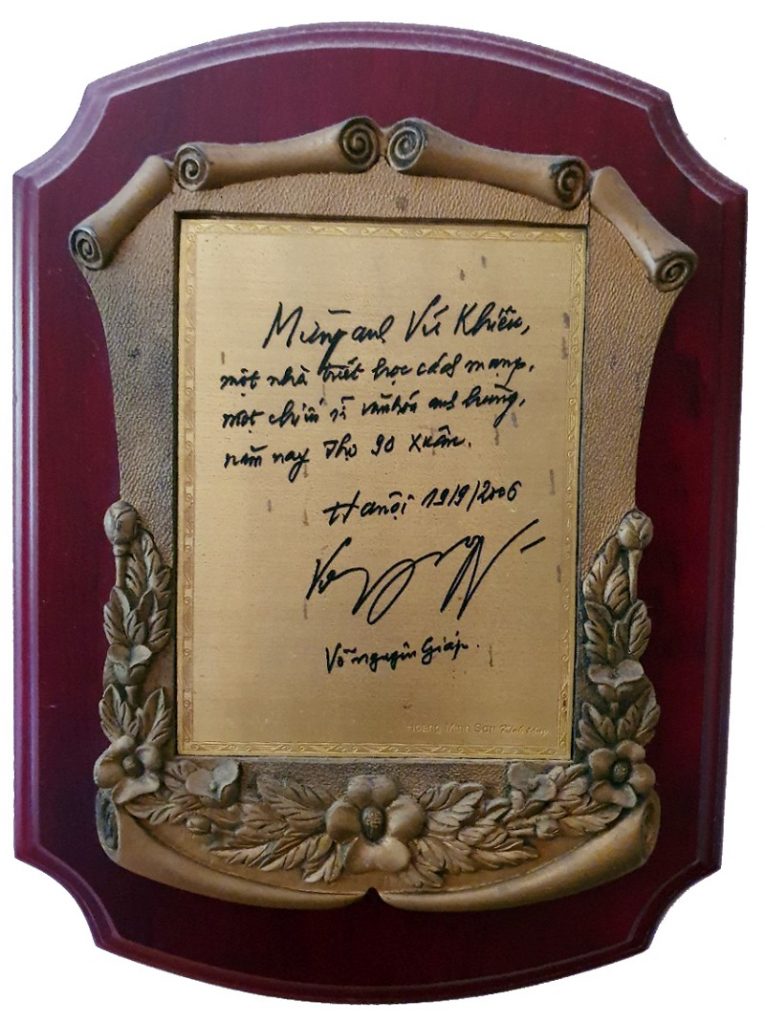 Mừng anh Vũ Khiêu,
một nhà triết học cách mạng,
một chiến sĩ văn hóa anh hùng,
năm nay thọ 90 xuân.
Hanội 19/9/2006
Võ nguyên Giáp.
Hoàng Minh Sơn